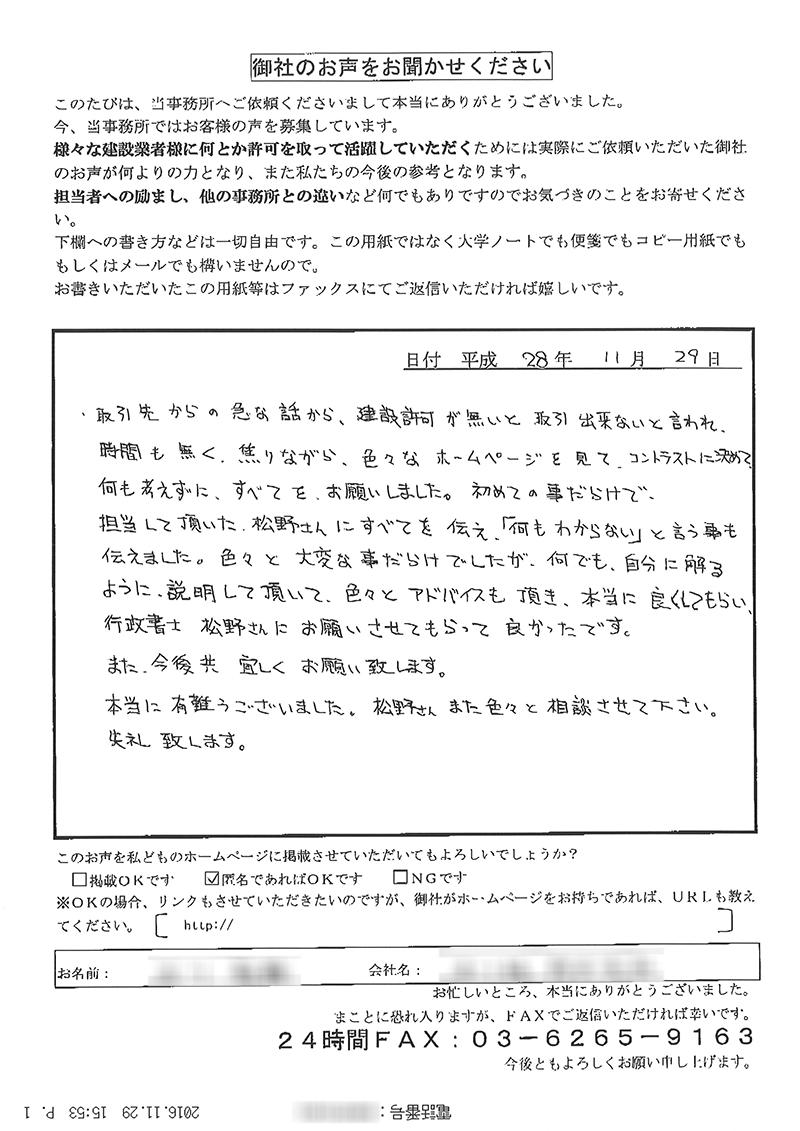 御社のお声をお聞かせください
このたびは、当事務所へご依頼くださいまして本当にありがとうございました。
今、当事務所ではお客様の声を募集しています。
様々な建設業者様に何とか許可を取って活躍していただくためには実際にご依頼いただいた御社
のお声が何よりの力となり、また私たちの今後の参考となります。
担当者への励まし、他の事務所との違いなど何でもありですのでお気づきのことをお寄せくださ
い。
下欄への書き方などは一切自由です。この用紙ではなく大学ノートでも便箋でもコピー用紙でも
もしくはメールでも構いませんので。
お書きいただいたこの用紙等はファックスにてご返信いただければ嬉しいです。
日付 平成 28年 11月 29日
・取引先からの急な話から、建設許可が無いと取引出来ないと言われ、
時間も無く、焦りながら、色々なホームページを見て、コントラストに決めて
何も考えずに、すべてを、お願いしました。初めての事だらけで、
担当して頂いた、松野さんにすべてを伝え、「何もわからない」と言う事も
伝えました。色々と大変な事だらけでしたが、何でも、自分に解る
ように、説明して頂いて、色々とアドバイスも頂き、本当に良くしてもらい、
行政書士 松野さんにお願いさせてもらって良かったです。
また、今後共 宜しくお願い致します。
本当に有難うございました。松野さんまた色々と相談させて下さい。
失礼致します。
このお声を私どものホームページに掲載させていただいてもよろしいでしょうか？
□掲載OKです ☑匿名であればOKです □NGです
※OKの場合、リンクもさせていただきたいのですが、御社がホームページをお持ちであれば、URLも教え
てください。 [ http:// ]
お名前： 会社名：
お忙しいところ、本当にありがとうございました。
まことに恐れ入りますが、FAXでご返信いただければ幸いです。
24時間FAX：03-6265-9163
今後ともよろしくお願い申し上げます。
電話番号：
2016.11.29 15:53 P. 1